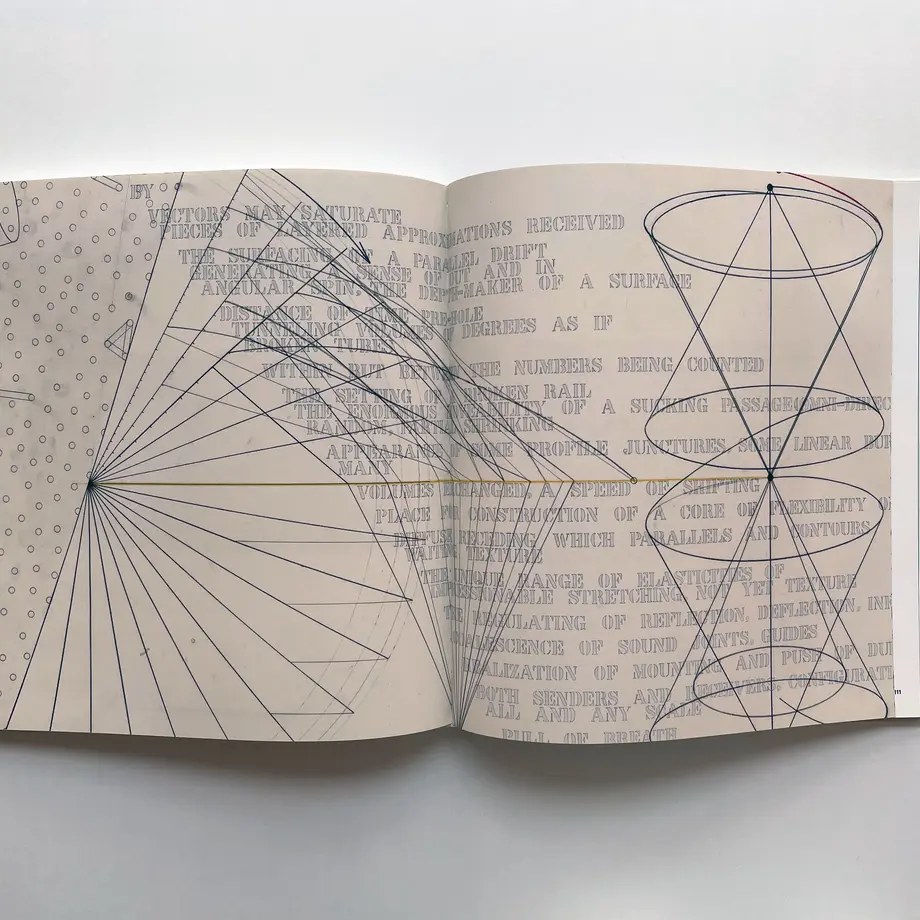 BY
VECTORS MAY SATURATE
PIECES OF LAYERED APPROXIMATIONS RECEIVED
THE SURFACING OF A PARALLEL DRIFT
GENERATING A SENSE OF OUT AND IN
ANGULAR SPIN, THE DEPTH-MAKER OF A SURFACE
DISTANCE OF TIME PRE-HOLE
TUNNELING VOLUMES DEGREES AS IF
BROKEN TUBES
WITHIN BUT BETWEEN THE NUMBERS BEING COUNTED
THE SETTING OF BROKEN RAIL
THE ENORMOUS OF A SUCKING PASSAGE OMNI-DIREC
RANDOM, SHRINKING
APPEARANCE OF SOME PROFILE JUNCTURES, SOME LINEAR
MANY
VOLUMES CHANGED, A SPEED OF SHIFTING
PLACE CONSTRUCTION OF A CORE OF FLEXIBILITY
DIFFUSE RECEDING WHICH PARALLELS AND CONTOURS
TEXTURE
RANGE OF ELASTICITIES OF
STRETCHING NOT YET TEXTURE
REGULATING OF REFLECTION, DEFLECTION,
OF SOUND JOINTS, GUIDES
OF MOUNTING AND PUSH OF
BOTH SENDERS AND RECEIVERS, CONFIGURATI
ALL AND ANY SCALE
PULL OF BREATH